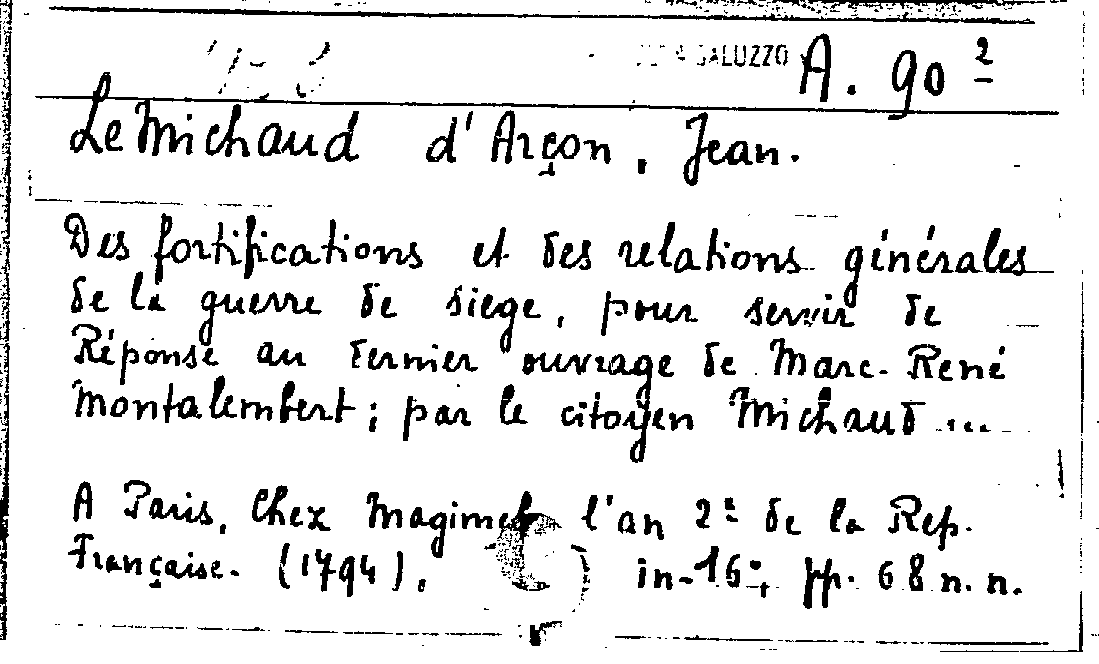 SALUZZO A. 90 2
Le Michaud d'Arçon, Jean.
Des fortifications et des relations générales
de la guerre de siege, pour servir de
Réponse au dernier ouvrage de Marc-René
Montalembert; par le citoyen Michaud ...
A Paris, Chez Magimel l'an 2e de la Rep.
Française. (1794). in-16°, pp. 68 n. n.